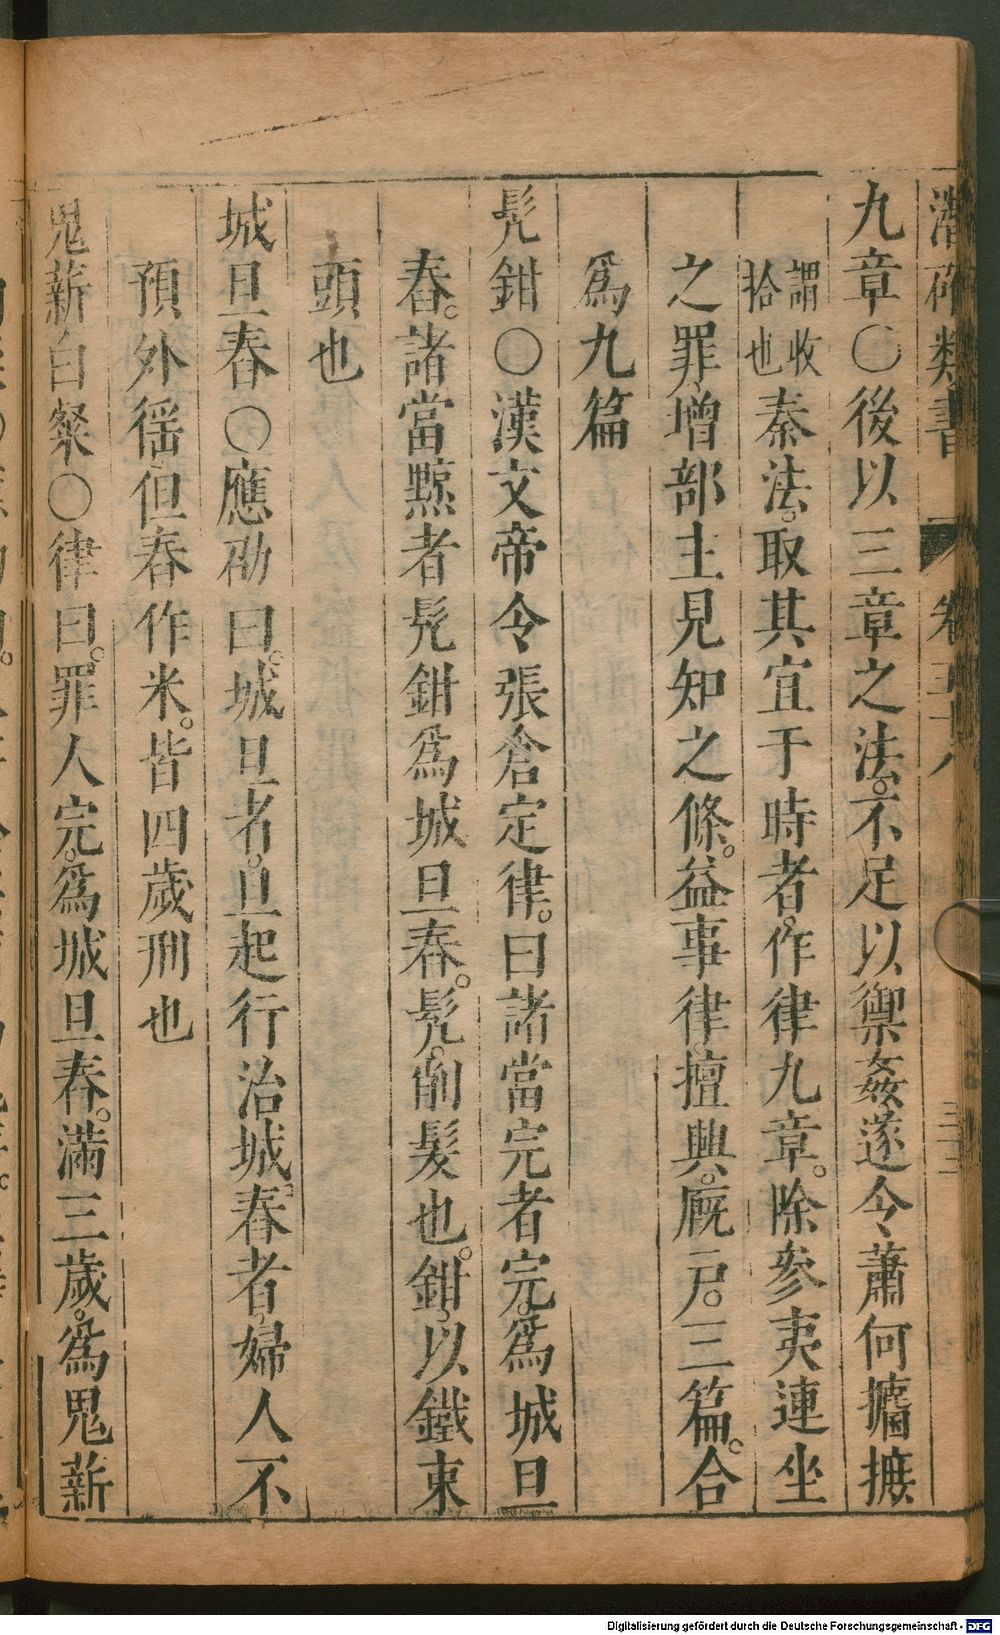 潛確類書 卷五十八 三三
九章〇後以三章之法。不足以禦姦遂令蕭何攟摭
謂收拾也秦法。取其宜于時者。作律九章。除參夷連坐
之罪、增部主見知之條。益事律、擅興。廐戶。三篇。合
爲九篇
髠鉗〇漢文帝令張倉定律。曰諸當完者完。爲城旦
舂。諸當黥者髠鉗爲城旦舂。髠。削髮也。鉗、以鐵束
頭也
城旦舂〇應劭曰。城旦者。旦起行治城、舂者、婦人不
預外徭、但舂作米。皆四歲刑也
鬼薪白粲〇律曰。罪人完。爲城旦舂。滿三歲。爲鬼薪
Digitalisierung gefördert durch die Deutsche Forschungsgemeinschaft - DFG